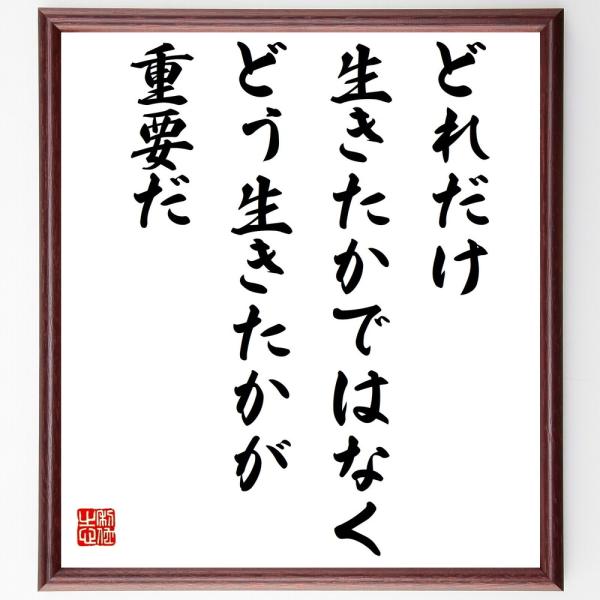 どれだけ
生きたかではなく
どう生きたかが
重要だ